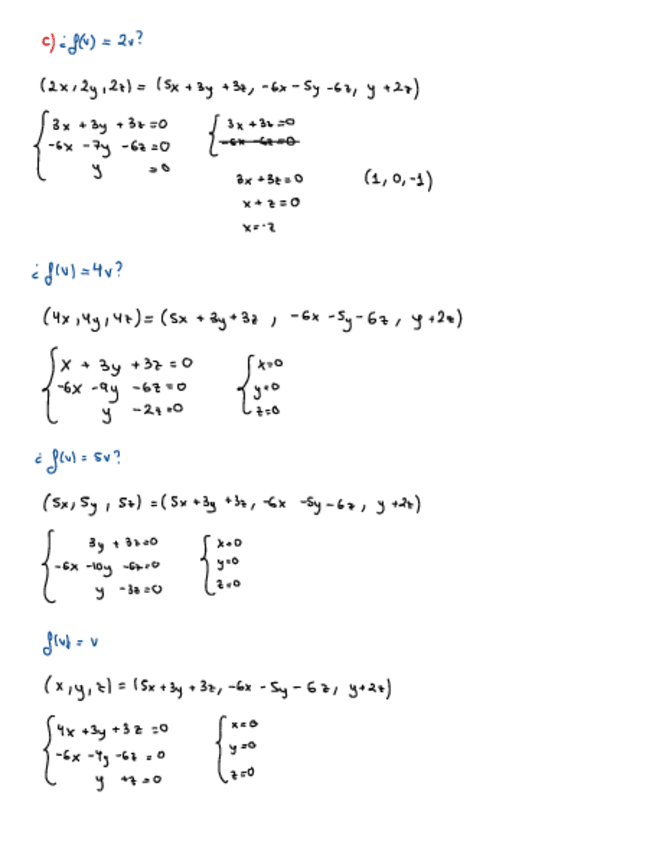 c) ¿f(v) = 2v?
(2x, 2y, 2z) = (5x + 3y + 3z, -6x - 5y - 6z, y + 2z)
3x + 3y + 3z = 0
-6x - 7y - 6z = 0
y = 0
3x + 3z = 0
-6x -6z = 0
3x + 3z = 0
x + z = 0
x = -z
(1, 0, -1)
¿f(v) = 4v?
(4x, 4y, 4z) = (5x + 3y + 3z, -6x - 5y - 6z, y + 2z)
x + 3y + 3z = 0
-6x - 9y - 6z = 0
y - 2z = 0
x = 0
y = 0
z = 0
¿f(v) = 5v?
(5x, 5y, 5z) = (5x + 3y + 3z, -6x - 5y - 6z, y + 2z)
3y + 3z = 0
-6x - 10y - 6z = 0
y - 3z = 0
x = 0
y = 0
z = 0
f(v) = v
(x, y, z) = (5x + 3y + 3z, -6x - 5y - 6z, y + 2z)
4x + 3y + 3z = 0
-6x - 4y - 6z = 0
y + z = 0
x = 0
y = 0
z = 0